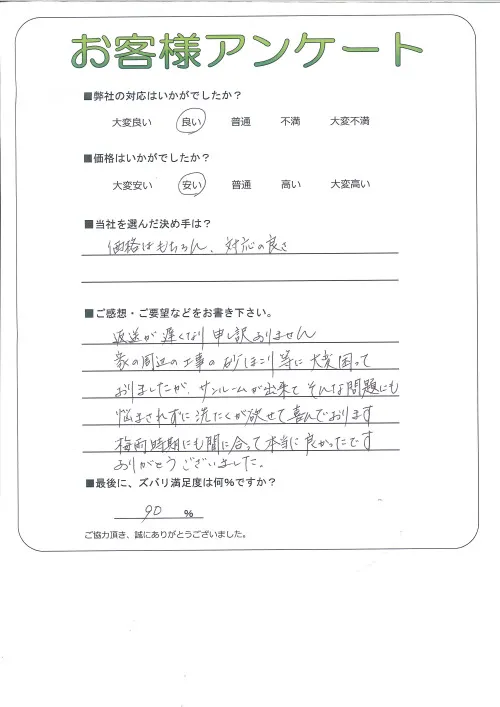 お客様アンケート
■弊社の対応はいかがでしたか？
大変良い 良い 普通 不満 大変不満
■価格はいかがでしたか？
大変安い 安い 普通 高い 大変高い
■当社を選んだ決め手は？
価格はもちろん、対応の良さ
■ご感想・ご要望などをお書き下さい。
返送が遅くなり申し訳ありません
家の周辺の工事の砂ほこり等に大変困って
おりましたが、サンルームが出来てそんな問題にも
悩まされずに洗たくが欲せて喜んでおります
梅雨時期にも間に合って本当に良かったです
ありがとうございました。
■最後に、ズバリ満足度は何％ですか？
90 ％
ご協力頂き、誠にありがとうございました。